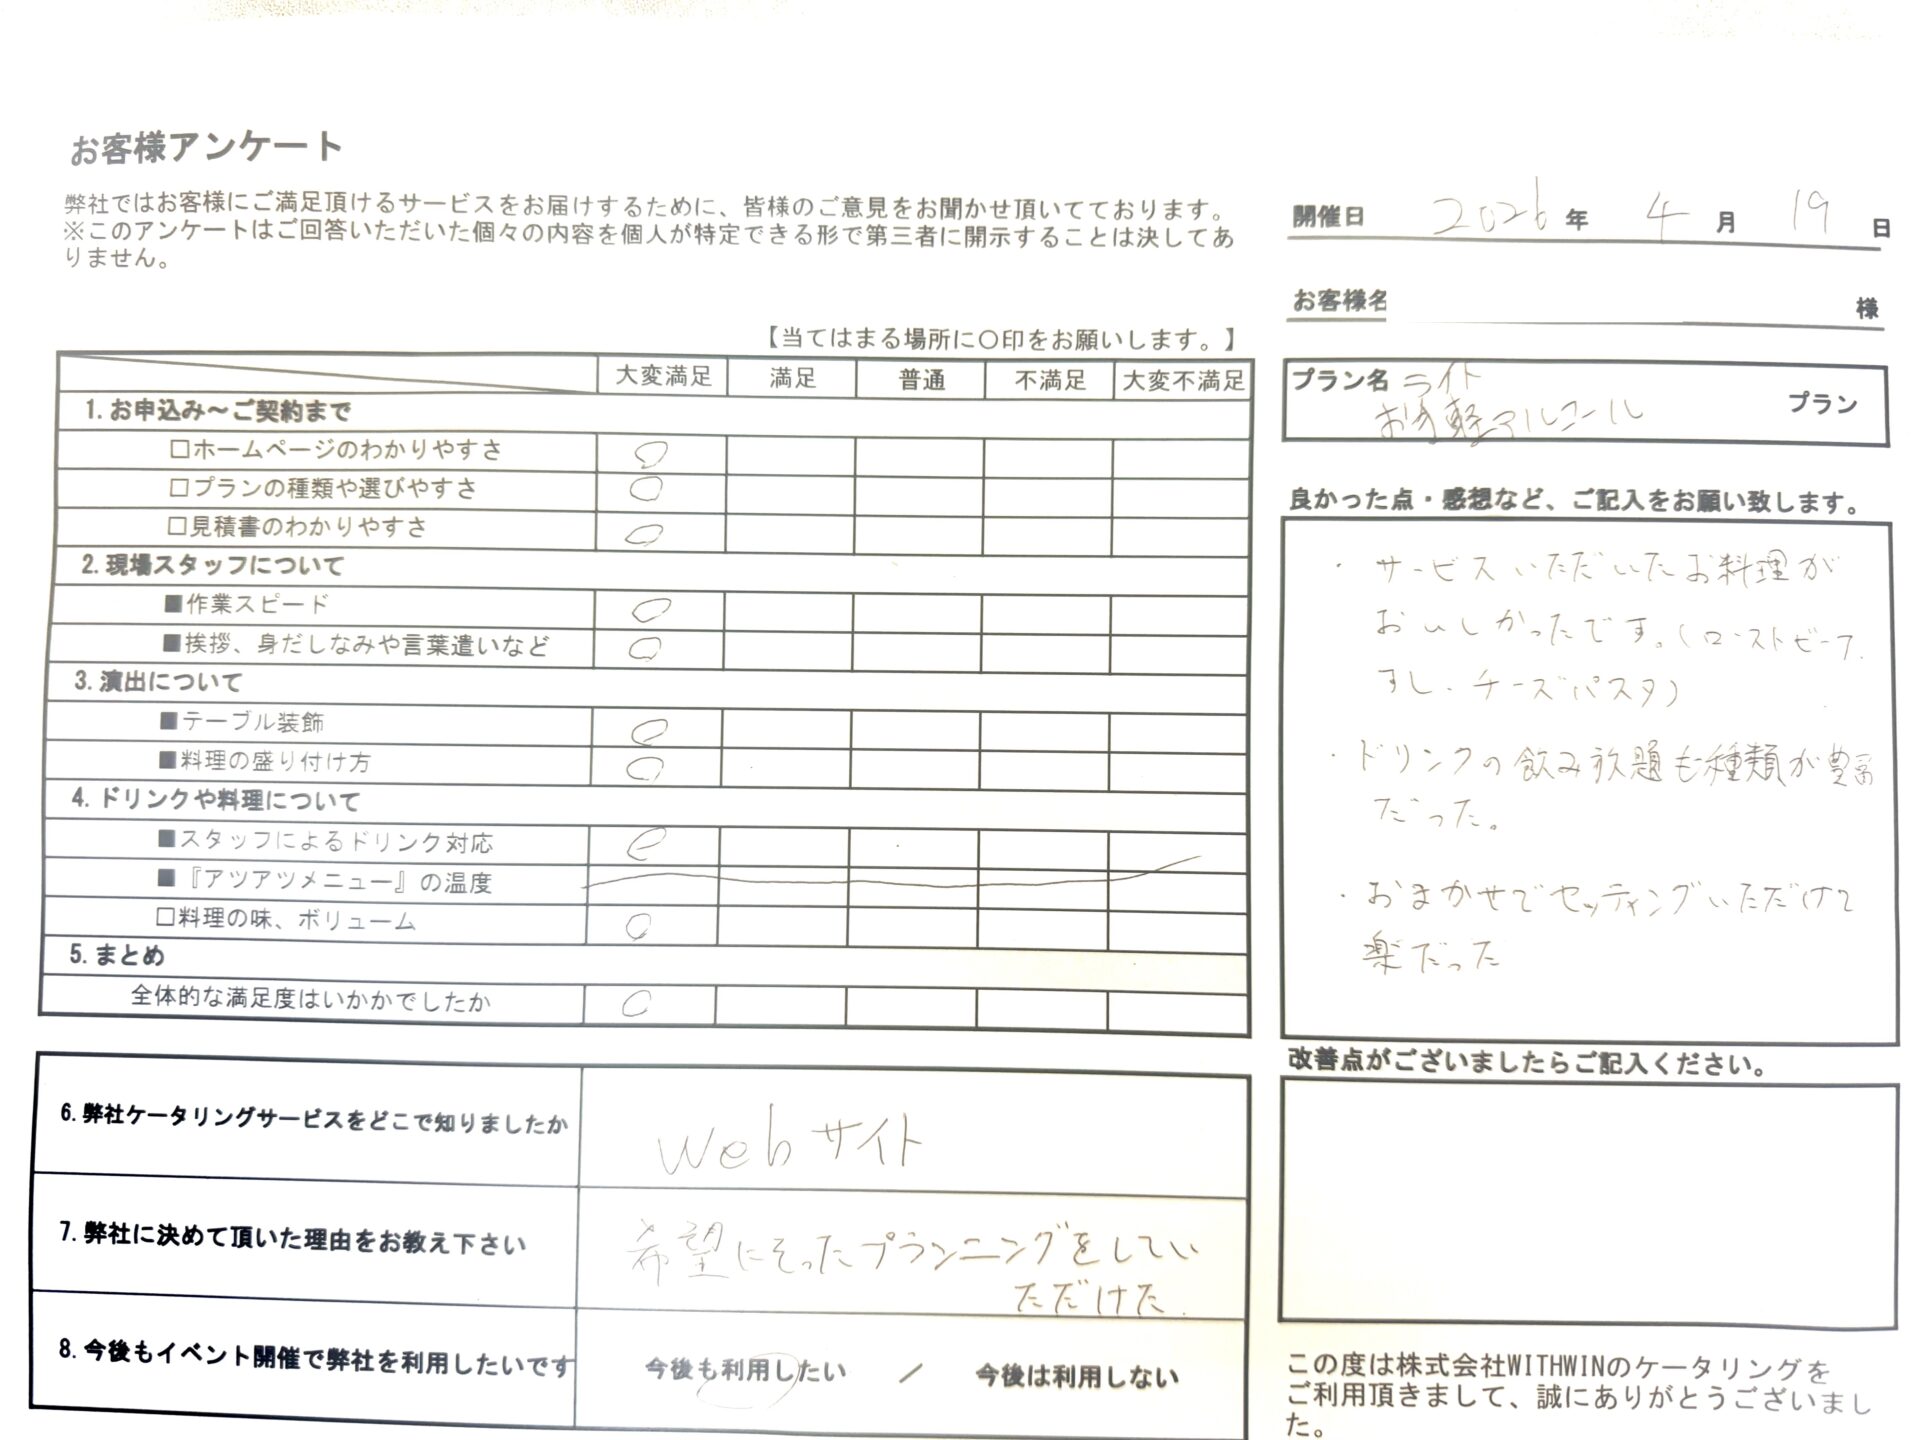 お客様アンケート
弊社ではお客様にご満足頂けるサービスをお届けするために、皆様のご意見をお聞かせ頂いてております。
※このアンケートはご回答いただいた個々の内容を個人が特定できる形で第三者に開示することは決してあ
りません。
【当てはまる場所に〇印をお願いします。】
大変満足 満足 普通 不満足 大変不満足
1.お申込み～ご契約まで
□ホームページのわかりやすさ ○
□プランの種類や選びやすさ ○
□見積書のわかりやすさ ○
2.現場スタッフについて
■作業スピード ○
■挨拶、身だしなみや言葉遣いなど ○
3.演出について
■テーブル装飾 ○
■料理の盛り付け方 ○
4.ドリンクや料理について
■スタッフによるドリンク対応 ○
■『アツアツメニュー』の温度
□料理の味、ボリューム ○
5.まとめ
全体的な満足度はいかかでしたか ○
6.弊社ケータリングサービスをどこで知りましたか
Webサイト
7.弊社に決めて頂いた理由をお教え下さい
希望にそったプランニングをしてい
ただけた.
8.今後もイベント開催で弊社を利用したいです
今後も利用したい ／ 今後は利用しない
開催日 2026 年 4 月 19 日
お客様名 様
プラン名 ライト
お手軽アルコール プラン
良かった点・感想など、ご記入をお願い致します。
・サービスいただいたお料理が
おいしかったです。(ローストビーフ、
すし、チーズパスタ)
・ドリンクの飲み放題も種類が豊富
だった。
・おまかせでセッティングいただけて
楽だった
改善点がございましたらご記入ください。
この度は株式会社WITHWINのケータリングを
ご利用頂きまして、誠にありがとうございまし
た。